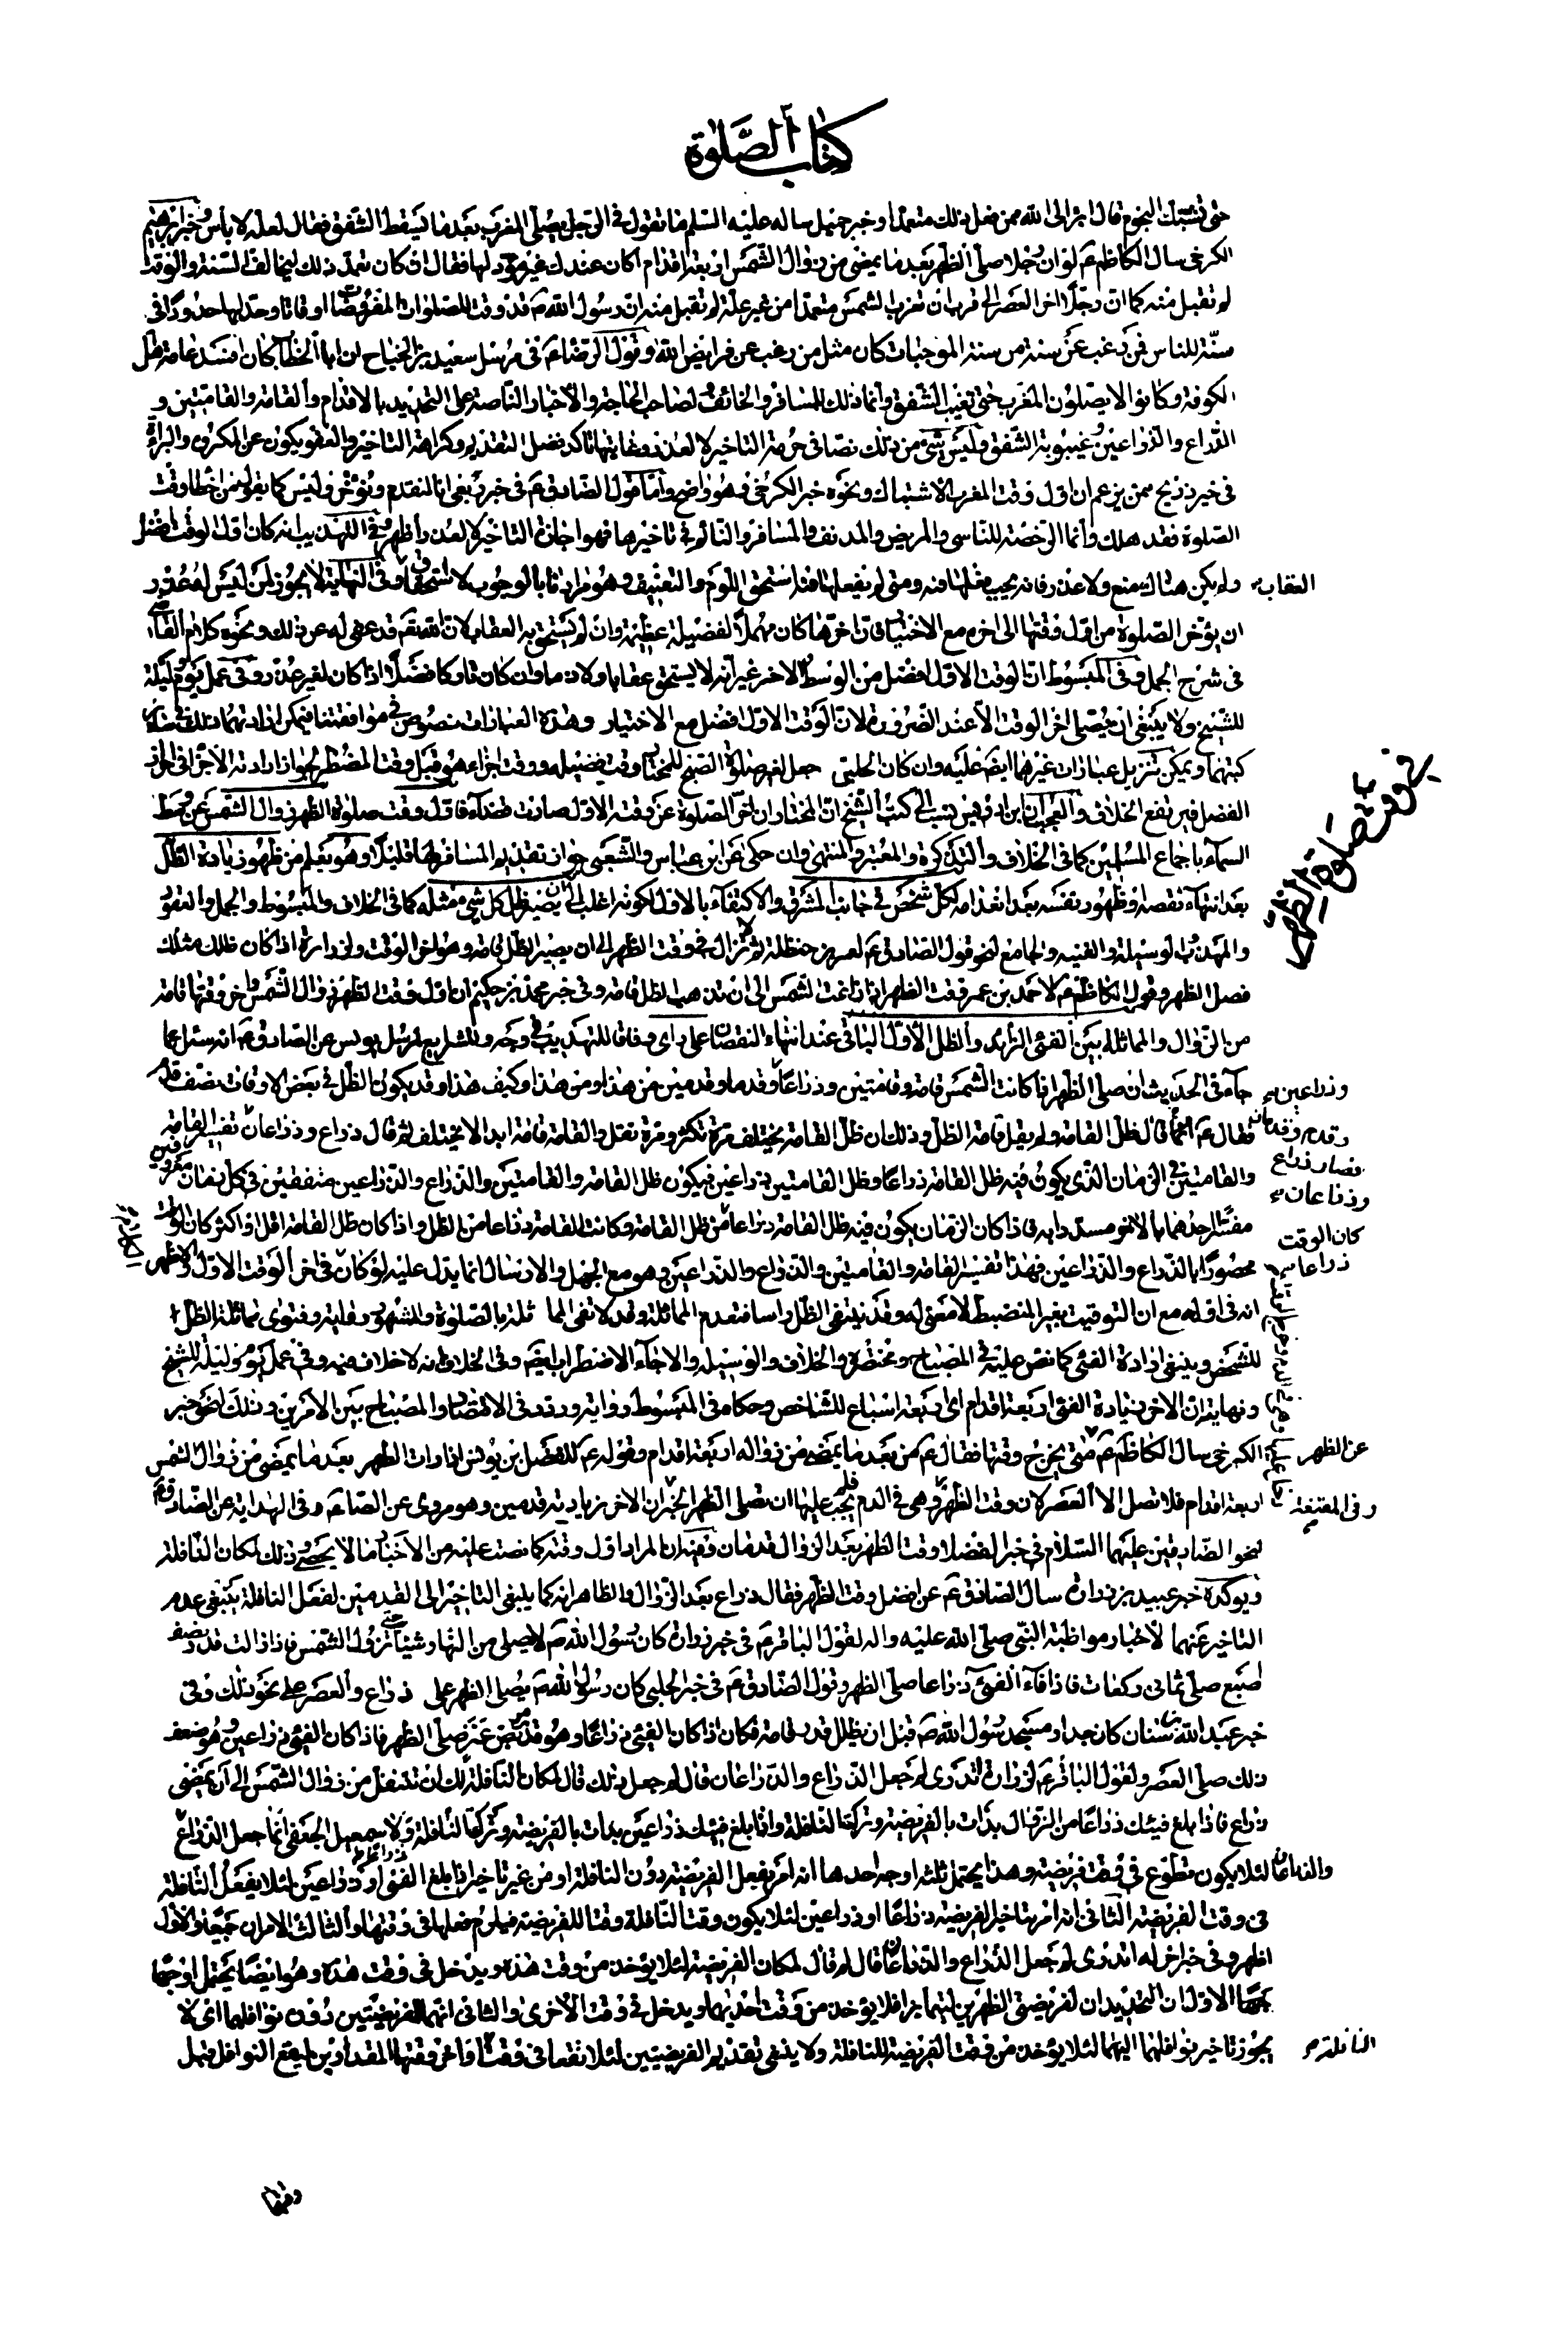 كتاب الصَّلوٰة
حتى تشتبك النجوم قال ابرا الى الله ممن فعل ذلك متعمدا وخبر جميل ساله عليه السّلم ما تقول في الرّجل يصلّى المغرب بعد ما يسقط الشّفق فقال لعلّة لا بأس وخبر ابرهيم
الكرخى سال الكاظم ع لو ان رجلا صلّى الظّهر بعد ما يمضى من زوال الشّمس اربعة اقدام اكان عندك غير مؤدّ لها فقال ان كان تعمّد ذلك ليخالف السّنة والوقت
لم تقبل منه كما انّ رجلا اخّر العصر الى قرب ان تغرب الشّمس متعمّدا من غير علّة لم تقبل منه ان رسول الله ص قد وقّت للصلوات المفروضات اوقاتا وحدّ لها حدودًا في
سنّة للناس فمن رغب عن سنة من سننه الموجبات كان مثل من رغب عن فرايض الله وقول الرّضا ع في مرسل سعيد بن الجناح ان ابا الخطّاب كان افسد عامة اهل
الكوفة وكانوا لا يصلون المغرب حتى تغيب الشّفق وانما ذلك للمسافر والخائف ولصاحب الحاجة والأخبار النّاصة على التحديد بالاقدام والقامة والقامتين و
الذّراع والذّراعين وغيبوبة الشّفق وليس شئ من ذلك نصّا في حرمة التاخير لا لعذر وغايتها تاكد فضل التقديم وكراهة التاخير والعفو يكون عن المكروه والبراءة
في خبر ذريح ممن يزعم ان اول وقت المغرب الاشتباك ونحوه خبر الكرخى فهو واضح وامّا قول الصّادق ع في خبر ربعى انا لنقدم ونؤخّر وليس كما يقول من اخطا وقت
الصّلوة فقد هلك وانّما الرّخصة للناسى والمريض والمدنف والمسافر والنائم في تاخيرها فهو اجازة التاخير لا لعذر اظهر وفي التهذيب انه كان اول الوقت افضل
ولم يكن هناك منع ولا عذر فانه يجب فعلها فيه ومتى لم يفعلها فيه استحق اللّوم والتعنيف وهو مرادنا بالوجوب لا استحقاق العقاب وفي النّهاية لا يجوز لمن ليس له عذر
ان يؤخّر الصّلوة من اول وقتها الى اخره مع الاختيار فان اخّرها كان مهملا لفضيلة عظيمة وان لم يستحق به العقاب لان الله تعالى قد عفى له عن ذلك ونحوه كلام القاضى
في شرح الجمل وفي المبسوط انّ الوقت الاوّل افضل من الوسط والاخر غير انّه لا يستحق عقابا ولا ذما وان كان تاركا فضلا اذا كان لغير عذر وفي عمل يوم وليلة
للشيخ ولا ينبغى ان يصلى اخر الوقت الّا عند الضّرورة لان الوقت الاوّل افضل مع الاختيار وهذه العبارات نصوص في موافقتنا فيمكن ارادتهما ذلك في ساير
كتبهما ويمكن تنزيل عبارات غيرهما ايضا عليه وان كان الحلبى جعل لغير صلوة الصّبح للمختار وقت فضيلة ووقت اجزاء هو قبل وقت المضطرّ لجواز ارادته الأجزاء في احراز
الفضل فيرتفع الخلاف والعجب ان ابن ادريس نسب الى كتب الشّيخ انّ المختار ان اخّر الصّلوة عن وقته الاوّل صارت قضاء فاوّل وقت صلوة الظّهر زوال الشّمس عن وسط
السّماء باجماع المسلمين كما في الخلاف والتّذكرة والمعتبر والمنتهى وان حكى عن ابن عبّاس والشّعبى جواز تقديم المسافر لها قليلا وهو يعلم من ظهور زيادة الظّلّ
بعد انتهاء نقصه وظهور نفسه بعد انعدامه لكل شخص في جانب المشرق والاكتفاء بالاوّل لكونه اغلب الى ان يصير ظلّ كل شئ مثله كما في الخلاف والمبسوط والجمل والعقود
والمهذّب والوسيلة والغنية والجامع لنحو قول الصّادق ع لعمر بن حنظلة لا تزال في وقت الظّهر الى ان يصير الظّل قامة وهو اخر الوقت ولزرارة اذا كان ظلك مثلك
فصل الظهر وقول الكاظم ع لاحمد بن عمر وقت الظهر اذا زاغت الشّمس الى ان تذهب الظل قامة وفي خبر محمد بن حكيم ان اول وقت الظهر زوال الشّمس واخر وقتها قامة
من الزّوال والمماثلة بين الفئ الزائد والظلّ الاوّل الباقى عند انتهاء النقصان على راى وفاقا للتهذيب في وجه وللشرايع لمرسل يونس عن الصّادق ع انه سئل عما
جآء في الحديث ان صلّ الظّهر اذا كانت الشّمس قامة وقامتين وذراعا وذراعين وقدما وقدمين من هذا ومن هذا وكيف هذا وقد يكون الظّلّ في بعض الاوقات نصف قدم
فقال ع انما قال ظلّ القامة ولم يقل قامة الظّلّ وذلك ان ظلّ القامة يختلف مرة تكثر ومرة تقل والقامة قامة ابدا لا يختلف ثم قال ذراع وذراعان وقدم وقدمان فصار ذراع وذراعان تفسير القامة
والقامتين في الزمان الذى يكون فيه ظل القامة ذراعا وظل القامتين ذراعين فيكون ظل القامة والقامتين والذّراع والذّراعين متفقين في كل زمان معروفين
مفسّرا احدهما بالاخر مسدّدا به فاذا كان الزّمان يكون فيه ظل القامة ذراعا كان الوقت ذراعا من ظل القامة وكانت القامة ذراعا من الظل واذا كان ظل القامة اقل او اكثر كان الوقت
محصورًا بالذّراع والذّراعين فهذا تفسير القامة والقامتين والذّراع والذّراعين وهو مع الجهل والارسال انما يدل عليه لو كان في اخر الوقت الاوّل والاظهر
انه في اوله مع ان التوقيت بغير المنضبط لا معنى له وقد ينتفى الظّل راسا فتعدم المماثلة وقد لا تفى المماثلة بالصّلوة والمشهور رواية وفتوى مماثلة الظّلّ
للشّخص وينبغى ارادة الفئ كما نص عليه في المصباح ومختصره والخلاف والوسيلة والا جاء الاضطراب ايضا وفي الخلاف انه لا خلاف فيه وفي عمل يوم وليلة للشيخ
ونهايته ان الاخر زيادة الفئ اربعة اقدام اى اربعة اسباع للشّاخص وحكاه في المبسوط رواية وردد في الاقتصاد والمصباح بين الامرين وذلك لنحو خبر
الكرخى سال الكاظم ع عن الظهر متى يخرج وقتها فقال ع من بعد ما يمضى من زواله اربعة اقدام وقوله ع للفضل بن يونس اذا رات الطهر بعد ما يمضى من زوال الشمس
اربعة اقدام فلا تصل الا العصر لان وقت الظهر وهى في الدم فلم يجب عليها ان تصلى الظهر وفي المقنعة الاخر زيادته قدمين وهو مروى عن الصّادق ع وفي الهداية عن الصّادق ع
لنحو الصّادقين عليهما السّلام في خبر الفضلاء وقت الظهر بعد الزوال قدمان وفيه ان المراد اول وقته كما نصت عليه من الاخبار ما لا يحصى وذلك لمكان النّافلة
ويوكده خبر عبيد بن زرارة سال الصّادق ع عن افضل وقت الظّهر فقال ذراع بعد الزّوال والظاهر انه كما ينبغى التاخير الى القدمين لفعل النافلة ينبغى عدم
التاخير عنهما لاخبار مواظبة النّبى صلى الله عليه واله لقول الباقر ع في خبر زرارة كان رسول الله ص لا يصلى من النهار شيئا حتى تزول الشّمس فاذا زالت قدر نصف
اصبع صلى ثمانى ركعات فاذا فاء الفئ ذراعا صلى الظهر وقول الصّادق ع في خبر الحلبى كان رسول الله ص يصلى الظهر على ذراع والعصر على نحو ذلك وفي
خبر عبد الله بن سنان كان جدار مسجد رسول الله ص قبل ان يظلل قدر قامة فكان اذا كان الفئ ذراعا وهو قدر مربض عنز صلى الظهر فاذا كان الفئ ذراعين وهو ضعف
ذلك صلى العصر ولقول الباقر ع لزرارة اتدرى لم جعل الذراع والذراعان قال لم جعل ذلك قال لمكان النّافلة لك ان تتنفل من زوال الشّمس الى ان يمضى
ذراع فاذا بلغ فيئك ذراعا من الزوال بدات بالفريضة وتركت النافلة واذا بلغ فيئك ذراعين بدات بالفريضة وتركت النافلة ولاسمعيل الجعفى انما جعل الذراع
والذراعان لئلا يكون تطوّع في وقت فريضة وهذا يحتمل ثلثة اوجه احدها انه امر بفعل الفريضة دون النافلة او من غير تاخير اذا بلغ الفئ ذراعا او ذراعين لئلا يفعل النافلة
في وقت الفريضة الثانى انه امر بتاخير الفريضة ذراعا او ذراعين لئلا يكون وقت النّافلة وقتا للفريضة فيلزم فعلها في وقتها والثالث الامران جميعا والاول
اظهر وفي خبر اخر له اتدرى لم جعل الذّراع والذّراعان قال لم قال لمكان الفريضة لئلا يؤخذ من وقت هذه ويدخل في وقت هذه وهو ايضا يحتمل اوجها
الاوّل ان التحديدان لفريضتى الظهرين انهما براء فلا يؤخذ من وقت احديهما ويدخل في وقت الاخرى والثانى انهما للفريضتين دون نوافلهما اى لا
يجوز تاخير نوافلهما اليهما لئلا يؤخذ من وقت الفريضة للنافلة ولا ينبغى تقديم الفريضتين لئلا تقعا في وقت النافلة فاخر وقتها المقدارين ليقع النوافل قبل
في وقت صلوة الظهر
وقتها